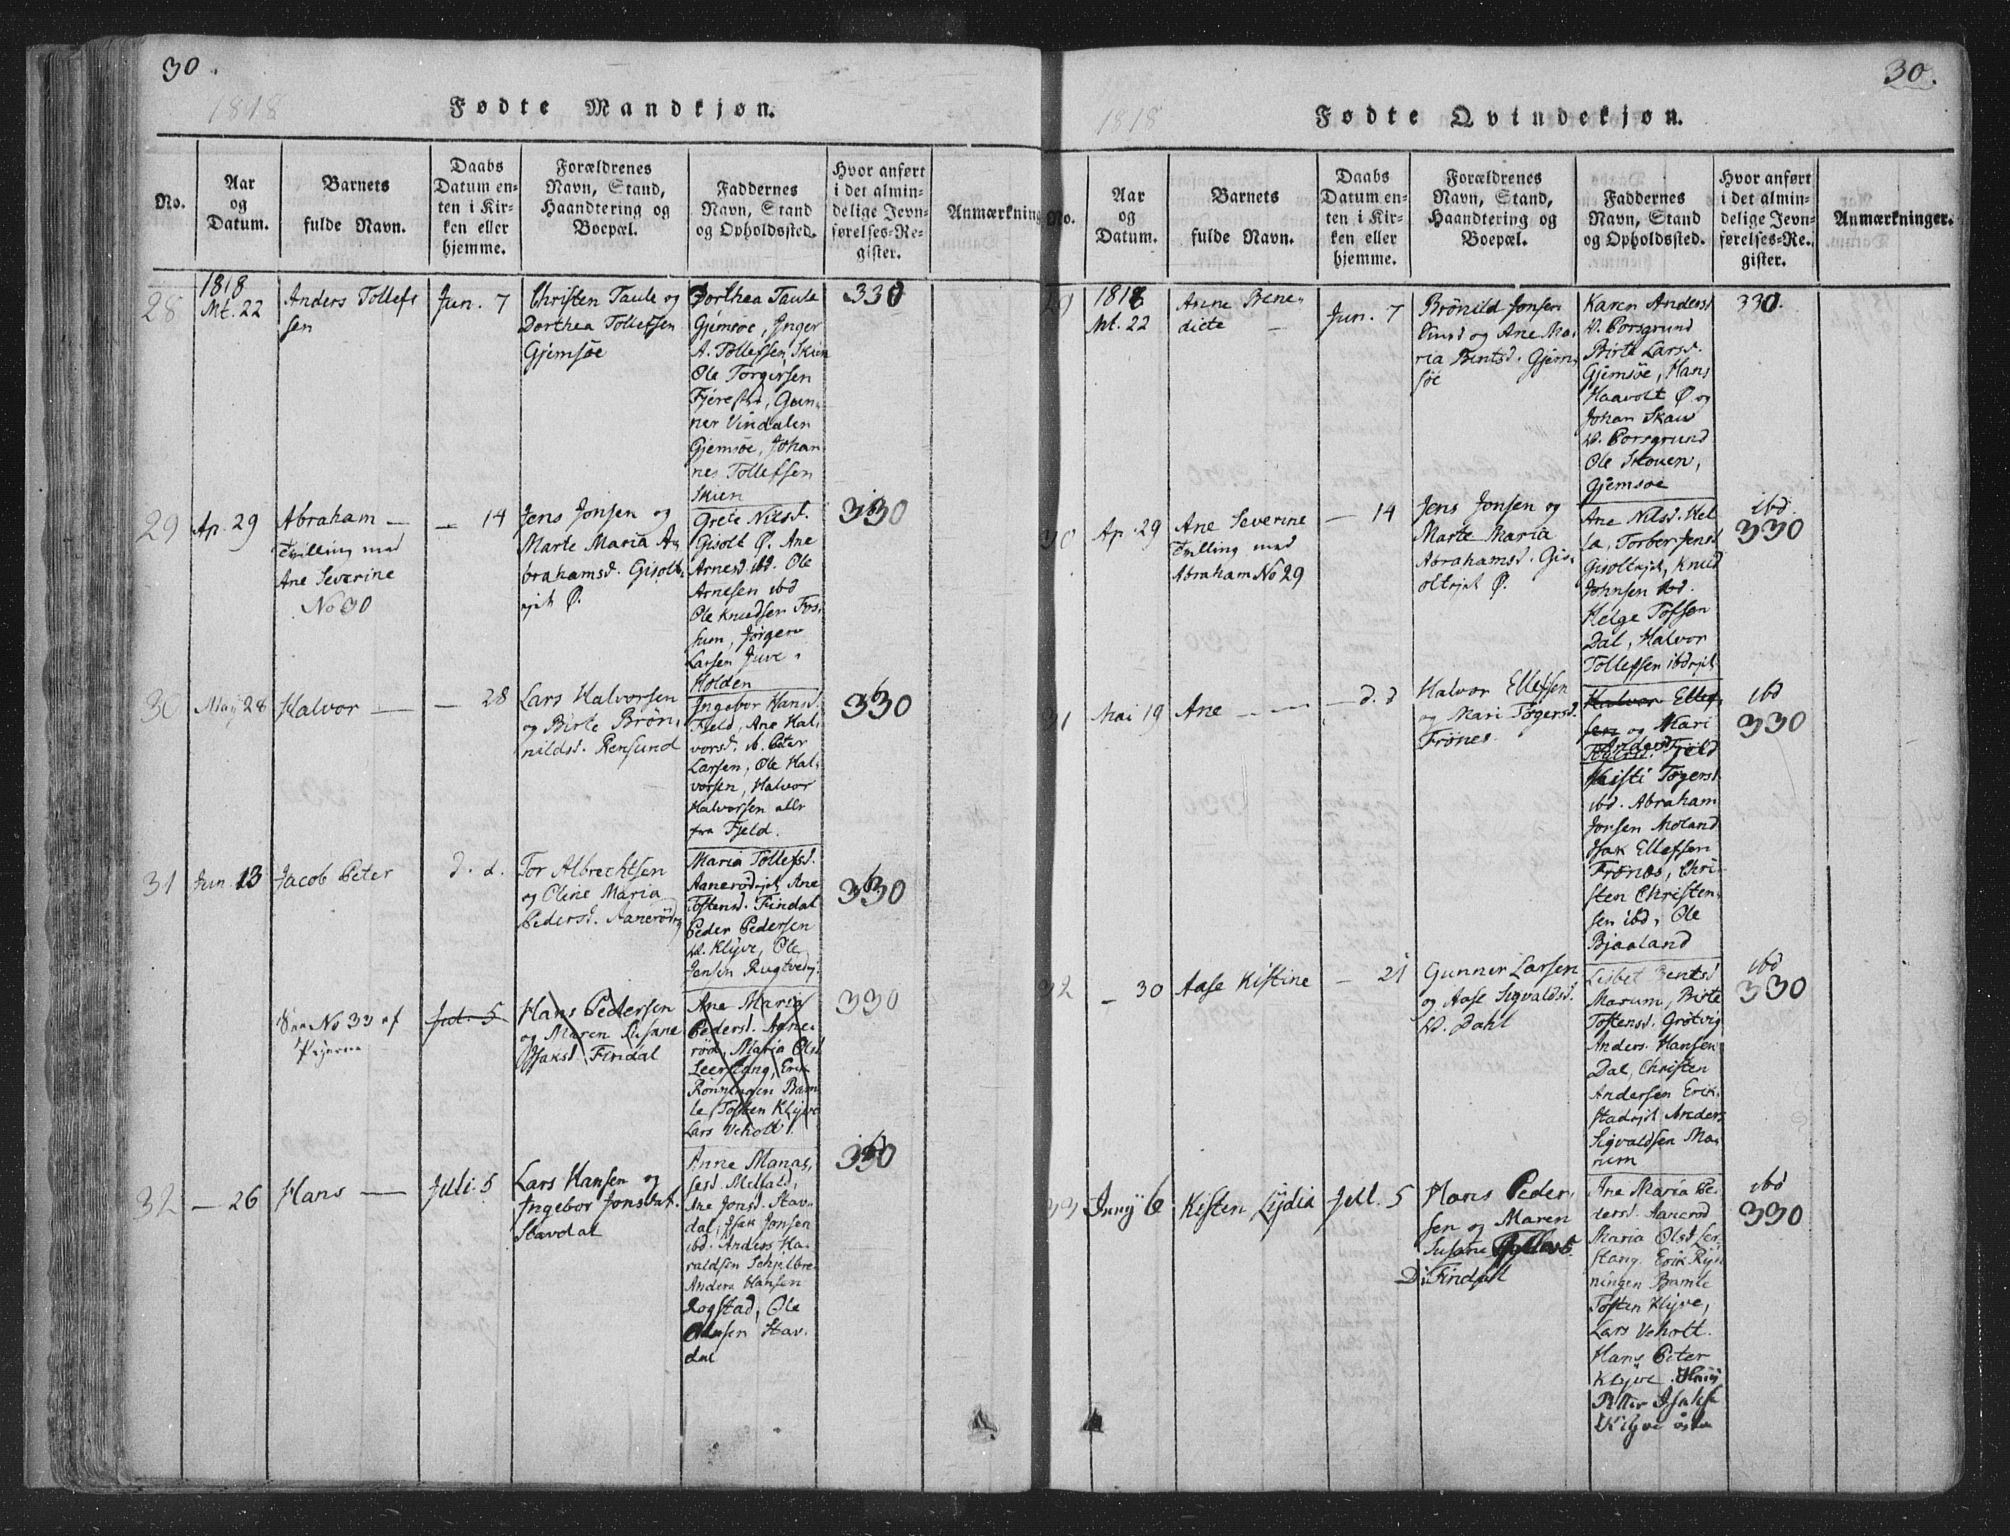 30.
1818
Fødte Mandkjøn.
No.
Aar
og
Datum.
Barnets
fulde Navn.
Daabs
Datum en-
ten i Kir-
ken eller
hjemme.
Forældrenes
Navn, Stand,
Haandtering og
Boepæl.
Faddernes
Navn, Stand
og Opholdssted.
Hvor anført
i det almin-
delige Jevn-
førelses-Re-
gister.
Anmærkning
28
1818
Mt. 22
Anders Tollefs
sen
Jun. 7
Christen Taule og
Dorthea Tollefsen
Gjemsøe
Dorthea Taule
Gjemsøe, Inger
A. Tollefsen, Skien
Ole Torgersen
Gun-
ner Vindalen
Gjemsøe, Johan
nes Tollefsen
Skien
330
29
Ap. 29
Abraham —
Tvilling med
Ane Severine
No 30
— 14
Jens Jonsen og
Marte Maria A-
brahamsd. Gisolt-
rjet Ø.
Grete Nilsd.
Gisolt Ø. Ane
Arnesd. ibd. Ole
Arnesen ibd
Ole Knudsen Fos-
sum, Jørgen
Larsen Juve
Holden
330
30
May 28
Halvor —
— 28
Lars Halvorsen
og Birte Brön-
nildsd. Rensund
Ingebor Hansd.
Fjeld, Ane Hal-
vorsd. ib. Peter
Larsen, Ole Hal-
vorsen, Halvor
Halvorsen alle
fra Fjeld.
330
31
Jun. 13
Jacob Peter
d. d.
Tor Albrechtsen
og Oline Maria
Pedersd. Aanerød
Maria Tollefsd.
Aanerødrjet, Ane
Tostensd. Findal
Peder Pedersen
V. Klyve, Ole
Jensen Rugtvedj.
330
No 33 af
Pigerne
Jul. 5
Hans Pedersen
og Maren Susane
Isaksd. Findal
Ane Maria
Pedersd. Aane-
rød, Maria Olsd
Leerstang, Erik
Rönningen Bam
le, Tosten Klyve
Lars Veholt.
330
32
— 26
Hans —
Juli. 5
Lars Hansen og
Ingebor Jonsdat.
Stavdal
Anne Manas-
sesd. Melfald,
Ane Jonsd. Stav-
dal, Isak Jonsen
ibd. Anders Ha-
raldsen Schjelbre-
Anders Hansen
Rogstad, Ole
Olusen Stav-
dal
330
30.
1818
Fødte Qvindekjøn.
No.
Aar
og
Datum.
Barnets
fulde Navn.
Daabs
Datum en-
ten i Kir-
ken eller
hjemme.
Forældrenes
Navn, Stand,
Haandtering og
Boepæl.
Faddernes
Navn, Stand
og Opholdssted.
Hvor anført
i det almin-
delige Jevn-
førelses-Re-
gister.
Anmærkninger.
29
1818
Mt. 22
Anne Bene-
dicte —
Jun. 7
Brönild Jonsen
og Ane Ma-
ria Bentsd. Gjem-
söe
Karen Andersd
V. Porsgrund
Birte Larsd.
Gjemsøe, Hans
Haavolt Ø. og
Johan Skau
V. Porsgrund
Ole Skouen,
Gjemsøe
330.
30
Ap. 29
Ane Severine
Tvilling med
Abraham No 29
— 14
Jens Jonsen og
Marte Maria
Abrahamsd. Gis-
oltrjet Ø.
Ane Nilsd. Hel-
la, Torber Jensd
Gisoltrjet, Knud
Johnsen ibd.
Helge Tofsen
Dal, Halvor
Tollefsen ibdrjet
ibd.
330
31
Mai 19
Ane — —
— d. d
Halvor Ellefsen
og Mari Togersd.
Frönes
Halvor Ellef-
sen og Mari
Andersd
Togersd. Fjeld
Kisti Togersd.
ibd. Abraham
Jorsen Moland
Isak Ellefsen
Frönes, Chri-
sten Christen-
sen ibd, Ole
Bjaaland
ibd
330
32
— 30
Aase Kistine
— 21
Gunner Larsen
og Aase Sigvaldsd.
V. Dahl
Lisbet Bentsd
Marum, Birte
Tostensd. Grötvig
Anders Hansen
Dal, Christen
Andersen Erik-
stadrjet Anders
Sigvaldsen Ma-
rum
ibd
330
33
Junÿ 6
Kisten Lydia
Jull. 5
Hans Peder-
sen og Maren
Susane
Findal
Ane Maria Pe-
dersd. Aanerød
Maria Olsd Ler-
stang. Erik Ryn
ningen Bamle
Tosten Klyve,
Lars Veholt.
Hans Peter
Klyve.
Peter Isaks
Klyve
ibd
330